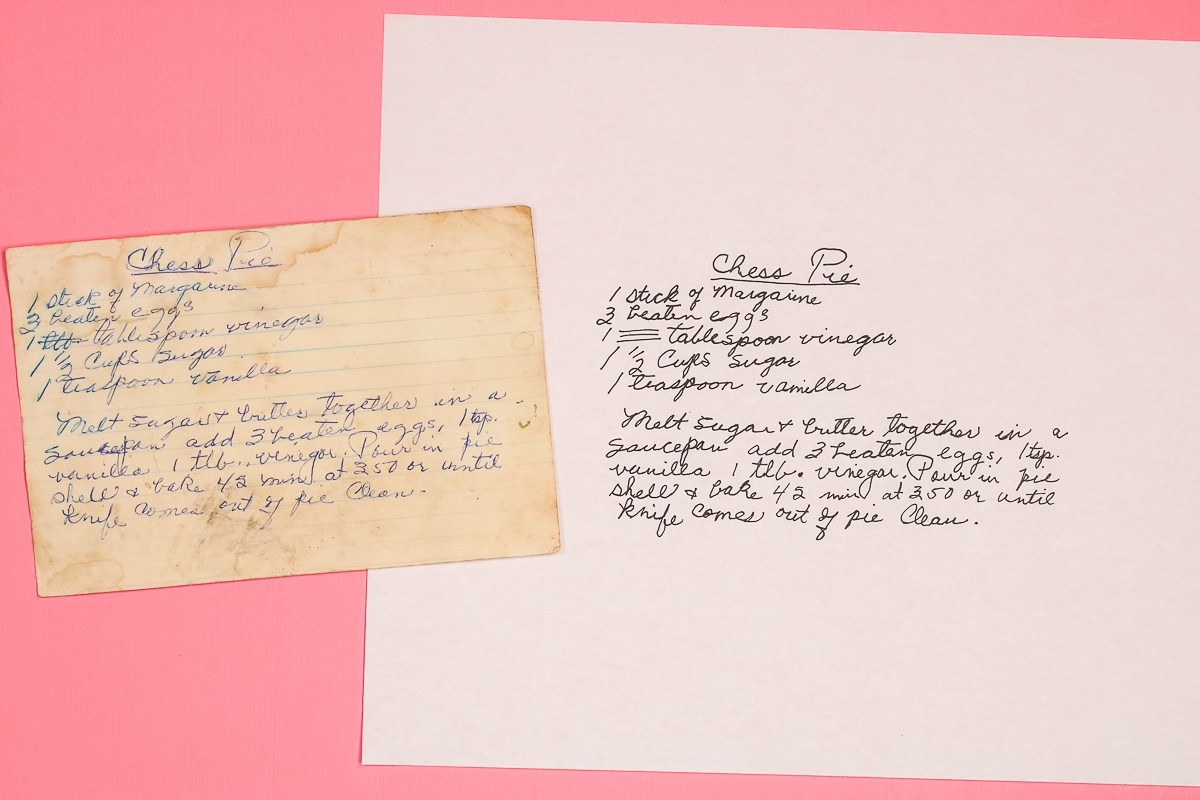 Chess Pie
1 stick of Margarine
3 beaten eggs
1 tablespoon vinegar
1 1/2 Cups Sugar
1 teaspoon vanilla
Melt Sugar & butter together in a
saucepan add 3 beaten eggs, 1 tsp.
vanilla 1 tlb.. vinegar. Pour in pie
shell & bake 45 min at 350 or until
knife comes out of pie Clean.
Chess Pie
1 stick of Margarine
3 beaten eggs
1 tablespoon vinegar
1 1/2 Cups Sugar
1 teaspoon vanilla
Melt Sugar & butter together in a
saucepan add 3 beaten eggs, 1 tsp.
vanilla 1 tlb. vinegar. Pour in pie
shell & bake 45 min at 350 or until
knife comes out of pie Clean.